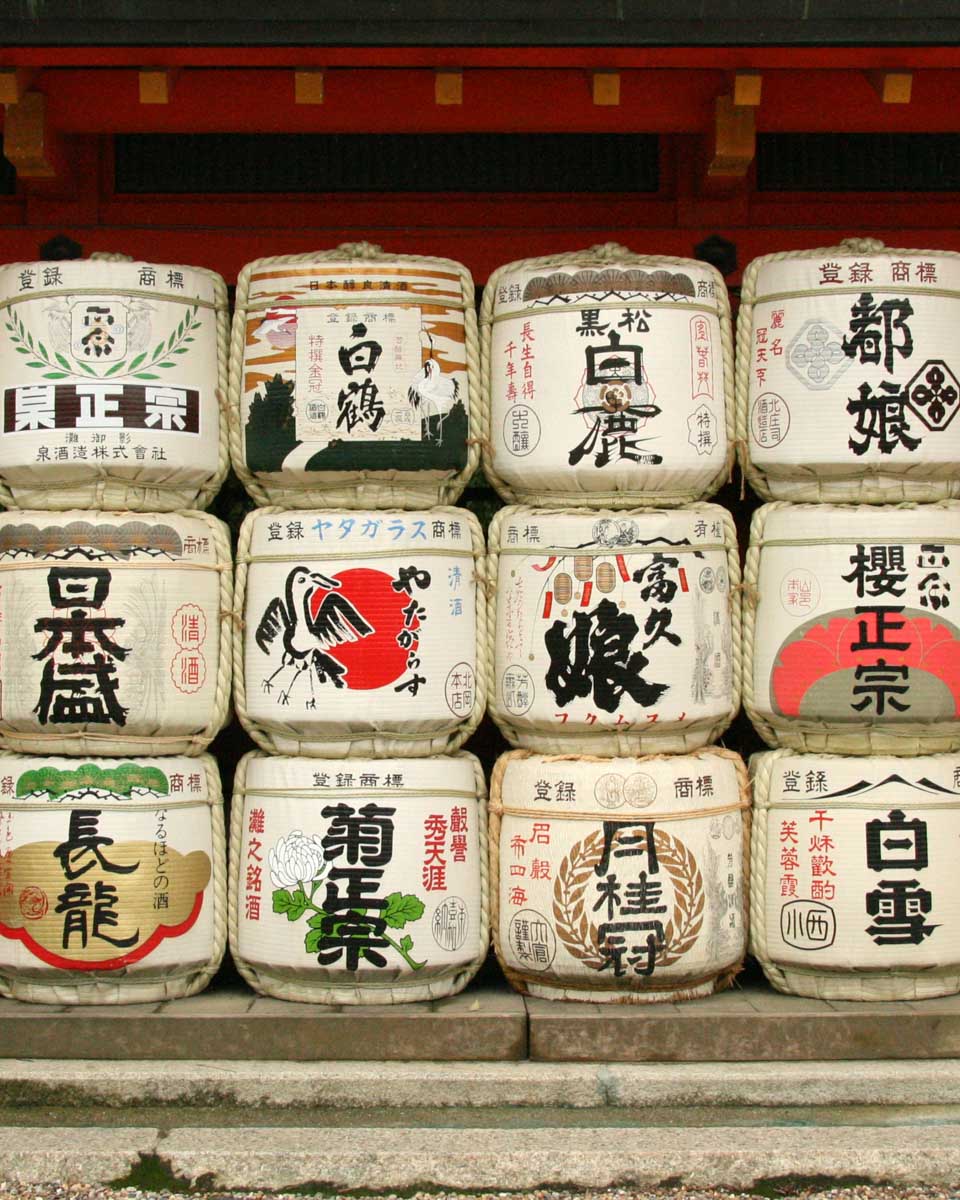 登録 商標
泉正宗
灘 御 影
泉酒造株式會社
日本醇良清酒
登録商標
特撰金冠
白鶴
登録 商標
黒松
白鹿
長生自得
千年壽
特撰
登録 商標
都娘
麗名
冠天下
北庄司
酒造店
商標
日本盛
清酒
登録 ヤタガラス 商標
清酒
やたがらす
北岡
本店
商標 登録
富久
娘
フクムスメ
正宗
櫻正宗
山邑
本家
録 商標
長龍
なるほどの酒
登録商標
灘之銘酒
菊正宗
秀天涯
登録 商標
月桂冠
名穀
布四海
大倉
謹製
登録 商
白雪
千秋歡酌
芙蓉霞
小西